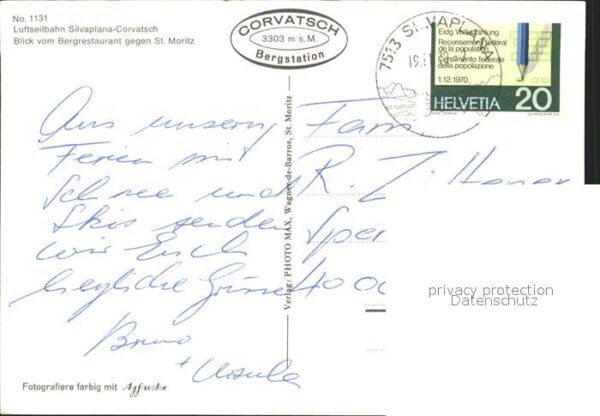 No. 1131
Luftseilbahn Silvaplana-Corvatsch
Blick vom Bergrestaurant gegen St. Moritz
CORVATSCH
3303 m s.M.
Bergstation
7513 SILVAPLANA
Eidg. Volkszählung
Recensement fédéral
de la population
Censimento federale
della popolazione
1.12.1970
HELVETIA 20
Aus unsern
Ferien mit
Schnee und
Skis senden
wir Euch
herzliche Grüsse
Bruno
+ Ursula
Fam.
R.
400
Verlag: PHOTO MAX, Wagner-de-Barros, St. Moritz
privacy protection
Datenschutz
Fotografiere farbig mit Agfacolor